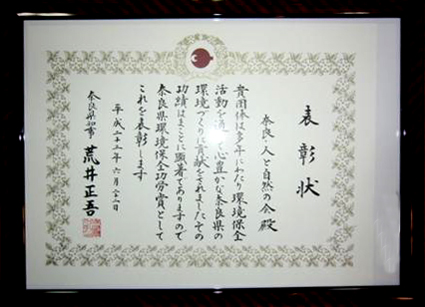 表彰状
奈良・人と自然の会殿
貴団体は多年にわたり環境保全
活動を通じ心豊かな奈良県の
環境づくりに貢献をされましたその
功績はまことに顕著でありますので
奈良県環境保全功労賞として
これを表彰します
平成二十二年六月二十二日
奈良県知事 荒井正吾